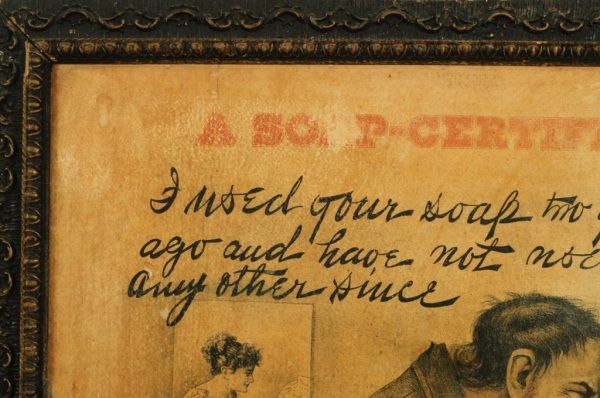 A SOAP-CERTIF
I used your soap two y
ago and have not use
any other since